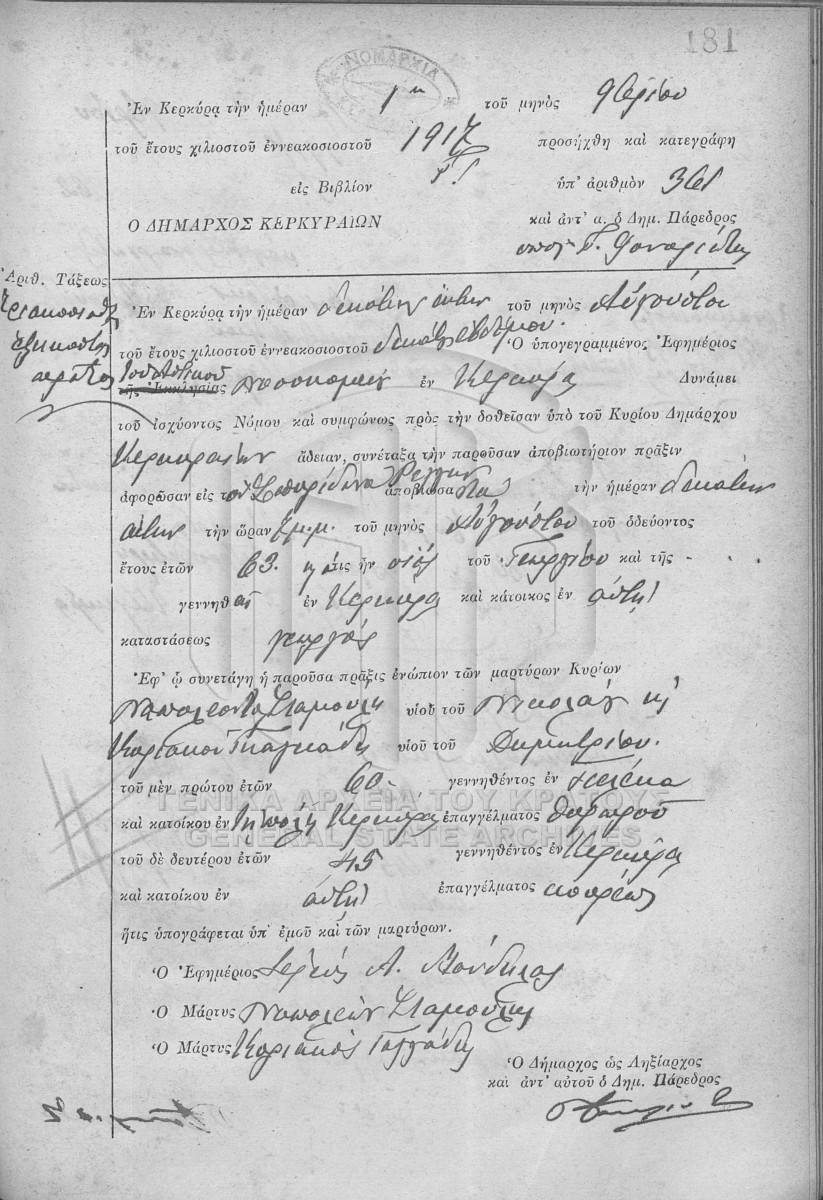 181
ΝΟΜΑΡΧΙΑ
Ἐν Κερκύρᾳ τὴν ἡμέραν 1ην τοῦ μηνὸς 9βρίου
τοῦ ἔτους χιλιοστοῦ ἐννεακοσιοστοῦ 1917 προσήχθη καὶ κατεγράφη
εἰς Βιβλίον Γ! ὑπ' ἀριθμὸν 361
Ο ΔΗΜΑΡΧΟΣ ΚΕΡΚΥΡΑΙΩΝ καὶ ἀντ' α. ὁ Δημ. Πάρεδρος
Ἀριθ. Τάξεως
Ἐν Κερκύρᾳ τὴν ἡμέραν δεκάτην ἕκτην τοῦ μηνὸς Αὐγούστου
τοῦ ἔτους χιλιοστοῦ ἐννεακοσιοστοῦ δεκάτου ἑβδόμου. Ὁ ὑπογεγραμμένος Ἐφημέριος
τῆς Ἐκκλησίας ἐν Κερκύρᾳ Δυνάμει
τοῦ ἰσχύοντος Νόμου καὶ συμφώνως πρὸς τὴν δοθεῖσαν ὑπὸ τοῦ Κυρίου Δημάρχου
Κερκυραίων ἄδειαν, συνέταξα τὴν παροῦσαν ἀποβιωτήριον πρᾶξιν
ἀφορῶσαν εἰς τὸν Σπυρίδωνα ἀποβιώσαντα τὴν ἡμέραν δεκάτην
ἕκτην τὴν ὥραν μ.μ. τοῦ μηνὸς Αὐγούστου τοῦ ὁδεύοντος
ἔτους ἐτῶν 63. ὅστις ἦν υἱὸς τοῦ Γεωργίου καὶ τῆς - . .
γεννηθεὶς ἐν Κερκύρᾳ καὶ κάτοικος ἐν αὐτῇ
καταστάσεως γεωργὸς
Ἐφ' ᾧ συνετάγη ἡ παροῦσα πρᾶξις ἐνώπιον τῶν μαρτύρων Κυρίων
Ναπολέοντα Σταμούλη υἱοῦ τοῦ Νικολάου κὶ
Κυριακοῦ Γιαγκάδη υἱοῦ τοῦ Δημητρίου.
τοῦ μὲν πρώτου ἐτῶν 60 - γεννηθέντος ἐν
καὶ κατοίκου ἐν τῇ πόλει Κερκύρᾳ ἐπαγγέλματος θυρωροῦ
τοῦ δὲ δευτέρου ἐτῶν 45 γεννηθέντος ἐν Κερκύρᾳ
καὶ κατοίκου ἐν αὐτῇ ἐπαγγέλματος κουρέως
ἥτις ὑπογράφεται ὑπ' ἐμοῦ καὶ τῶν μαρτύρων.
Ὁ Ἐφημέριος Ἱερεὺς Α.
Ὁ Μάρτυς Ναπολέων Σταμούλης
Ὁ Μάρτυς Κυριακὸς
Ὁ Δήμαρχος ὡς Ληξίαρχος
καὶ ἀντ' αὐτοῦ ὁ Δημ. Πάρεδρος
ΓΕΝΙΚΑ ΑΡΧΕΙΑ ΤΟΥ ΚΡΑΤΟΥΣ
GENERAL STATE ARCHIVES